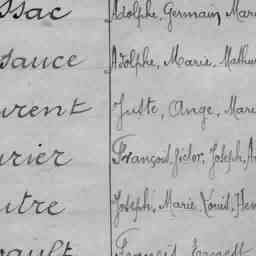 ssac Adolphe, Germain, Mari
sauce Adolphe, Marie, Mathur
urent Juste, Ange, Mari
urier François, Victor, Joseph, A
utre Joseph, Marie, Louis, Hen
gault François, Ernest